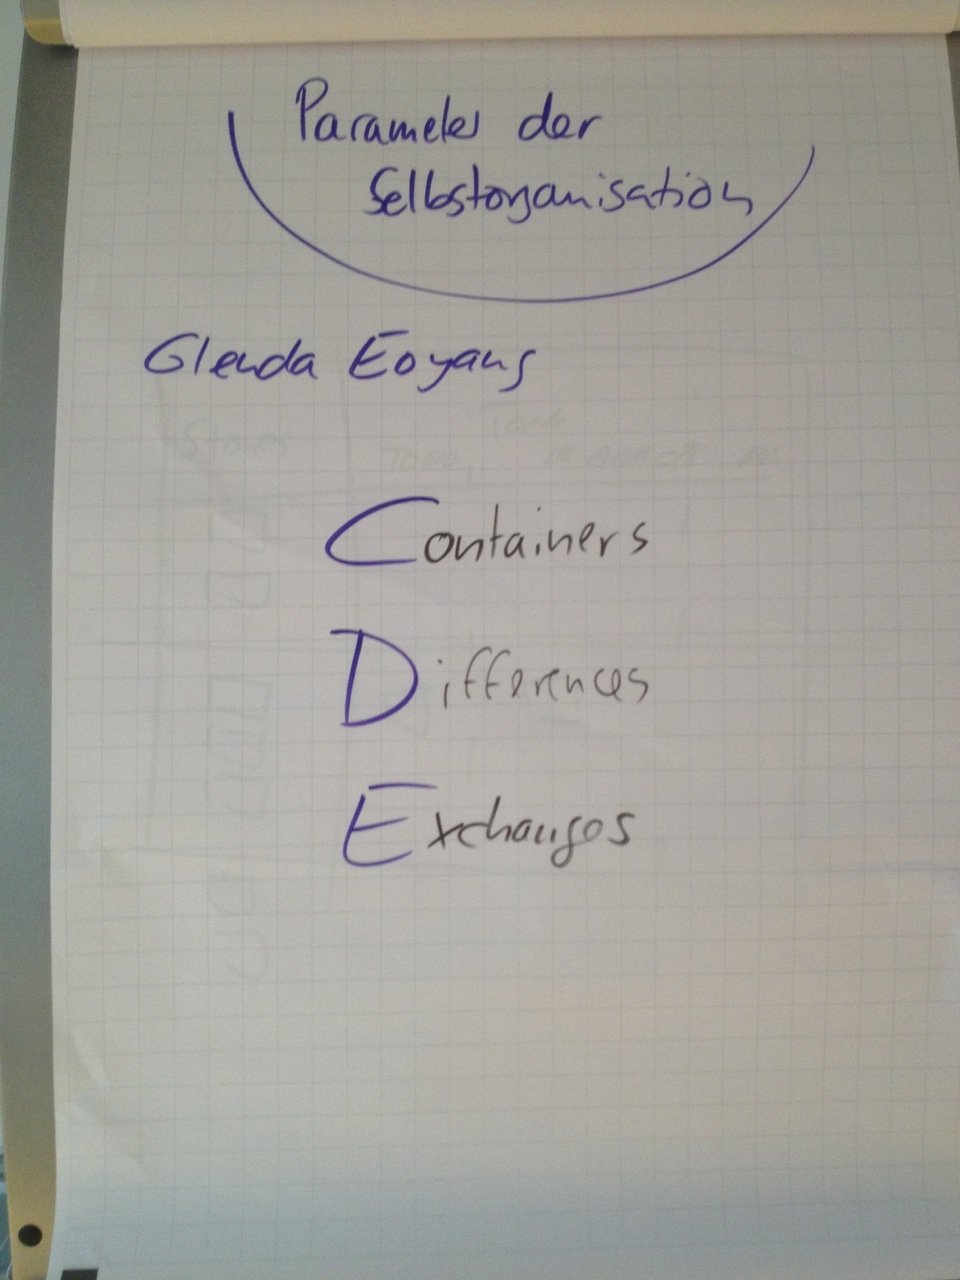 Parameter der
Selbstorganisation
Glenda Eoyang
Containers
Differences
Exchanges
Stories
Task